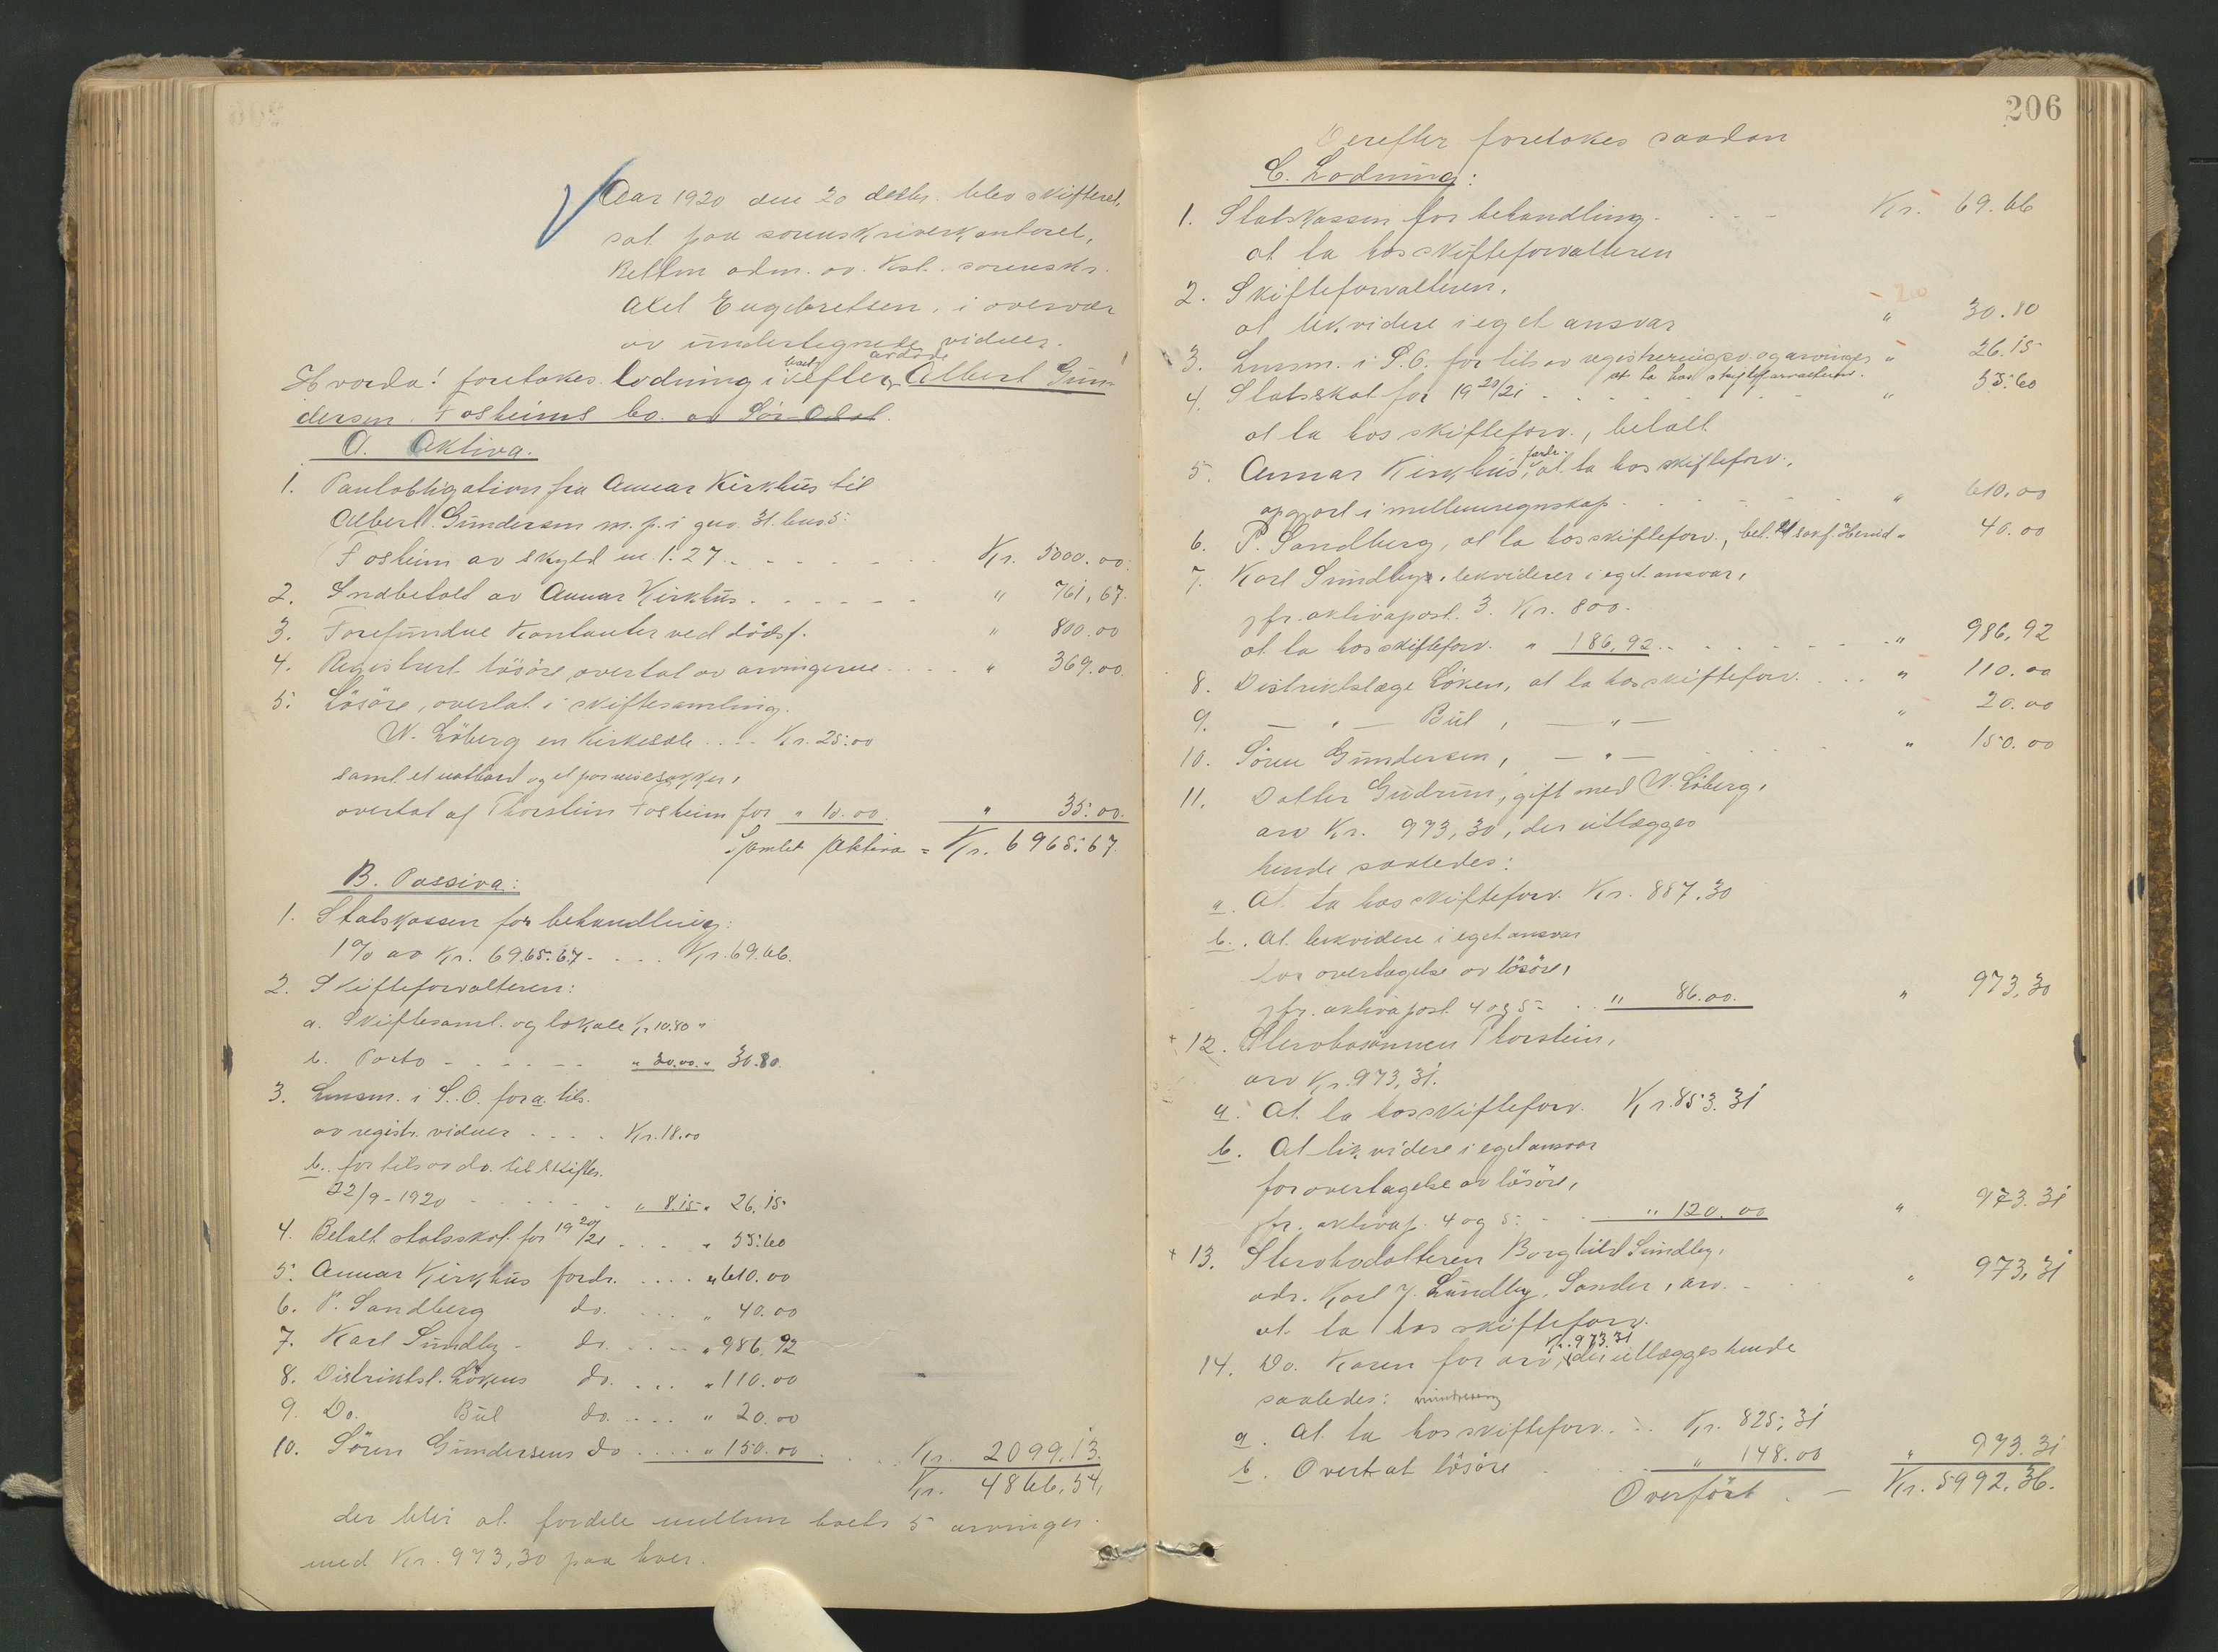 Aar 1920 den 20 decbr. blev skifteret
sat paa sorenskriverkontoret,
Retten adm. av Kst. sorenskr.
Axel Engebretsen, i overvær
av undertegnede vidner.
Hvorda! foretokes lodning i boet efter avdøde Albert Gun-
dersen Fosheims bo av Sör-Odal.
A. Aktiva.
1. Pantobligation fra Annar Kirkhus til
Albert Gundersen m. p. i gno. 31. bno 5.
Fosheim av skyld m. 1.27 . . Kr. 5000.00.
2. Indbetalt av Annar Kirkhus . . " 761,67.
3. Forefundne Kontanter ved dödsf. " 800.00
4. Registrert lösöre, overtat av arvingerne . . " 369.00.
5. Lösöre, overtat i skiftesamling.
N. Löberg en Kirkesale . . Kr. 25.00
samt et
overtat af Thorstein Fosheim for " 10.00. " 35.00.
Samlet Aktiva = Kr. 6965.67.
B. Passiva:
1. Statskassen for behandling:
1% av Kr. 6965.67. . . . Kr. 69.66.
2. Skifteforvalteren:
a. Skiftesaml. og lokale Kr 10.80 "
b. Porto . . " 20.00. " 30.80.
3. Lensm. i S. O. for a. tils.
av registr. vidner . . . . Kr. 18.00
b. for tils av do. til skiftes.
22/9 - 1920 . . " 8.15 " 26.15
4. Betalt statsskat for 1920/21 . . " 55.60
5. Annar Kirkhus fordr. . . . . " 610.00
6. P. Sandberg do. . . . " 40.00
7. Karl Sundby do. . . . " 986.92
8. Distriktsl. Lökens do. . . . " 110.00
9. Do. Bül do. . . . . " 20.00
10. Sören Gundersens do . . . . " 150.00 . . . Kr. 2099.13.
Kr. 4866,54,
der blir at fordele mellem boets 5 arvinger
med Kr. 973,30 paa hver.
206
Derefter foretokes saadan
C. Lodning:
1. Statskassen for behandling . . Kr. 69.66
at ta hos skifteforvalteren
2. Skifteforvalteren,
at likvidere i eget ansvar " 30.80
3. Lensm. i S.O. for tils av registreringsv. og arvinger " 26.15
at ta hos skifteforvalteren.
4. Statsskat for 1920/21 . . " 55.60
at ta hos skifteforv., betalt
5. Annar Kirkhus, fordr. at ta hos skifteforv.,
opgjort i mellemregnskap . . " 610.00
6. P. Sandberg, at ta hos skifteforv., bet. til sakf. " 40.00
7. Karl Sundby, likviderer i eget ansvar,
jfr. aktivapost. 3. Kr. 800.
at ta hos skifteforv. " 186,92 . . " 986,92
8. Distriktslæge Löken, at ta hos skifteforv. . . . " 110.00
9. — " — Bül, — " — " 20.00
10. Sören Gundersen, — " — " 150.00
11. Datter Gudrun, gift med N. Löberg,
arv Kr. 973,30, der utlægges
hende saaledes:
a. At ta hos skifteforv. Kr. 887.30
b. At likvidere i eget ansvar
for overtagelse av lösöre,
jfr. aktivapost 4 og 5 . . " 86.00. " 973,30
12. Stervbosönnen Thorstein,
arv Kr. 973,31.
a. At ta hos skifteforv. Kr. 853.31
b. At likvidere i eget ansvar
for overtagelse av lösöre,
jfr. aktivap. 4 og 5. . . " 120.00 " 973.31
13. Stervbodatteren Borghild Sundby,
adr. Karl J. Sundby, Sander, arv. . . " 973,31
at ta hos skifteforv.
14. Do. Karen for arv, Kr. 973.31 der utlægges hende
saaledes:
a. At ta hos skifteforv. . . Kr. 825,31
b. Overtat lösöre . . " 148.00 " 973.31
Overfört . — Kr. 5992.36.